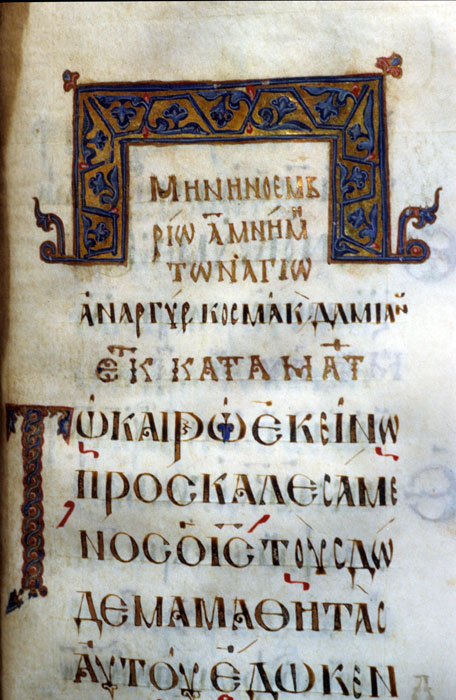 ΜΗΝΙ ΝΟΕΜΒ
ΡΙΩ Α ΜΝΗΜ
ΤΩΝ ΑΓΙΩ
ΑΝΑΡΓΥΡ ΚΟΣΜΑ Κ ΔΑΜΙΑΝ
ΕΚ ΚΑΤΑ ΜΑΤ
Τῶ ΚΑΙΡῶ ἘΚΕΙΝΩ
ΠΡΟΣΚΑΛΕΣΑΜΕ
ΝΟΣ Ὁ ΙΣ ΤΟΥΣ ΔΩ
ΔΕΚΑ ΜΑΘΗΤΑΣ
ΑΥΤΟΥ ἘΔΩΚΕΝ